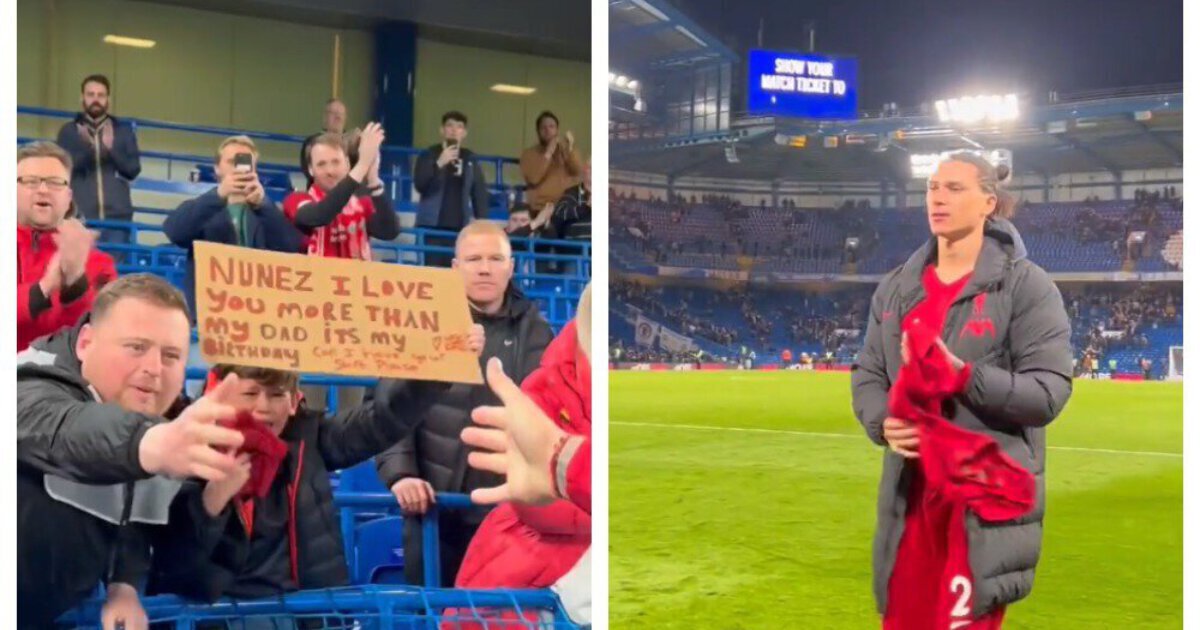 NUNEZ I LOVE
YOU MORE THAN
MY DAD ITS MY
BIRTHDAY Can I have your
Shirt Please
SHOW YOUR
MATCH TICKET TO
2